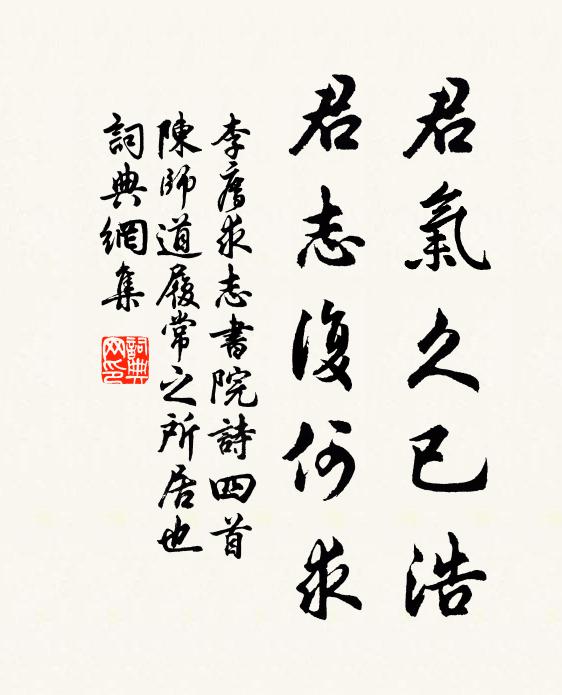 君氣久已浩
君志復何求
李唐求志書院詩四首
陳師道履常之所居也
詞典網集
詞典网印